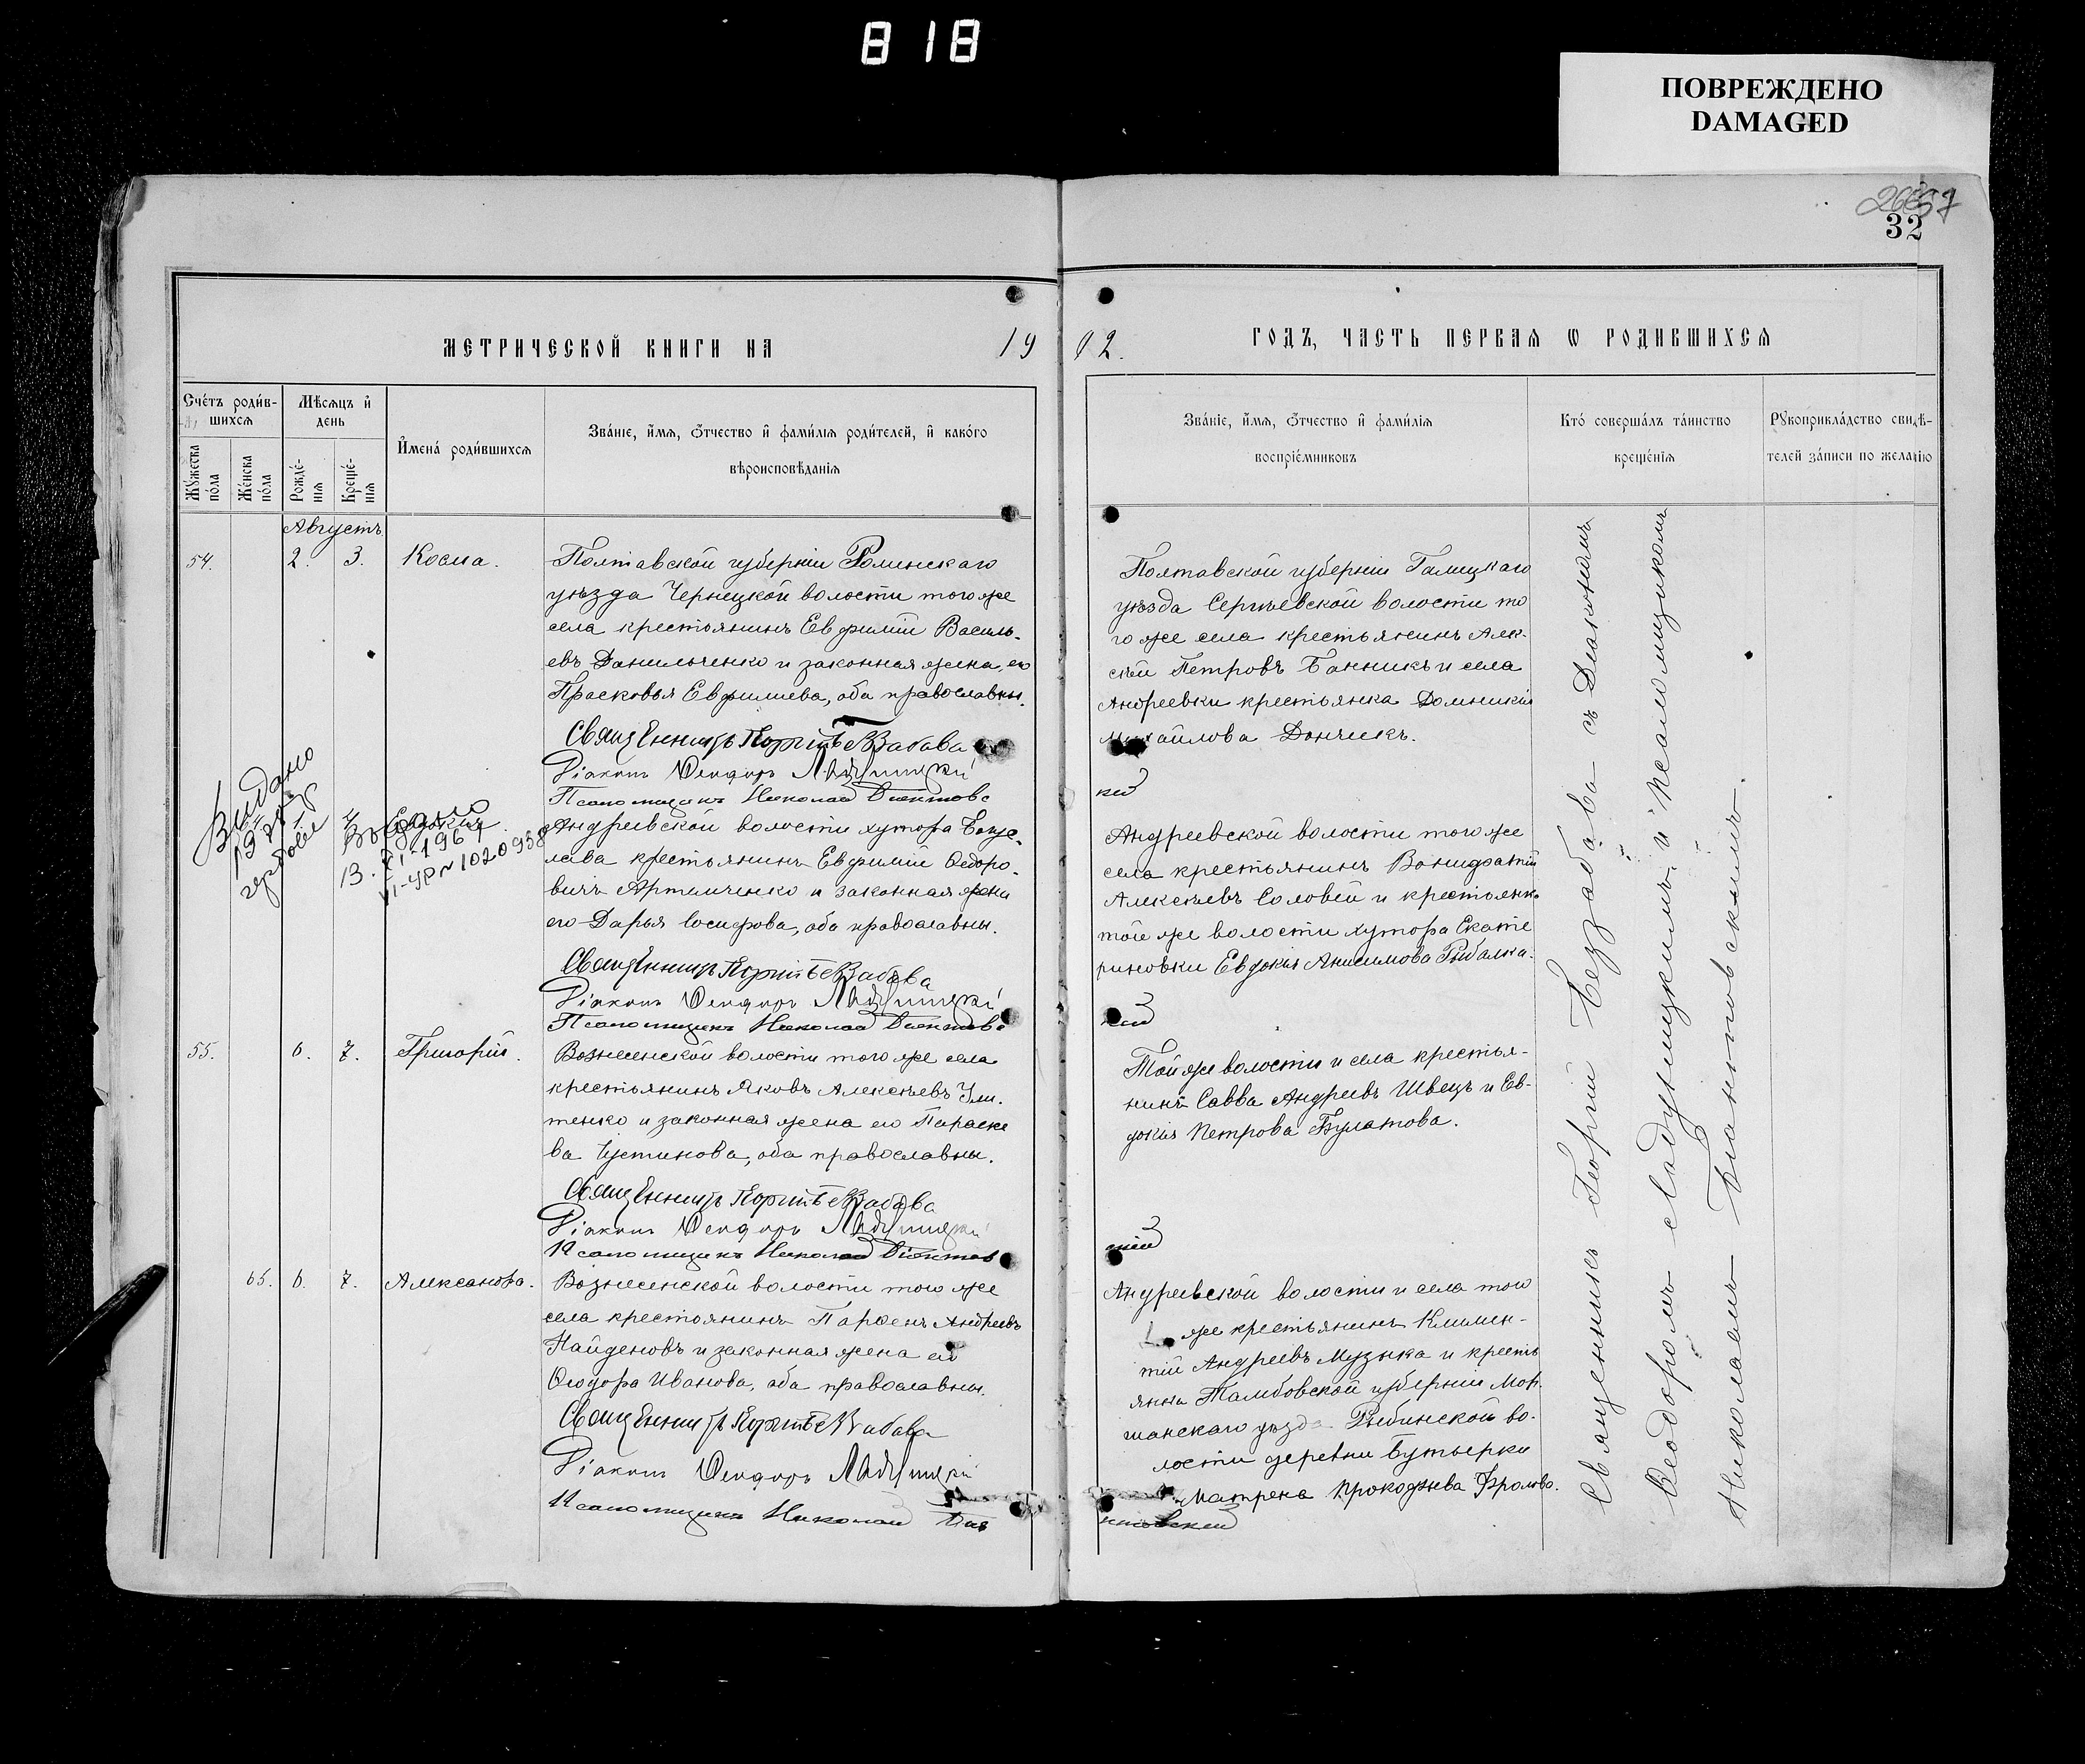 818
ПОВРЕЖДЕНО
DAMAGED
32
МЕТРИЧЕСКОЙ КНИГИ НА 19
Счетъ родив-
шихся
Мѣсяцъ и
день
Имена родившихся
Званіе, имя, отчество и фамилія родителей, и какого
вѣроисповѣданія
Мужеска
пола
Женска
пола
Рожде-
нія
Креще-
нія
Августъ
54. 2. 3. Косма.
Полтавской губерніи Роменскаго
уѣзда Чернецкой волости того же
села крестьянинъ Евфимій Василь-
евъ Данильченко и законная жена его
Прасковья Евфимиева, оба православны.
Священникъ Георгій Беззабава
Діаконъ Феодоръ
Псаломщикъ Николай
Выдано
Выдано
13. XI-1967
VI-УР № 1020938
Андреевской волости хутора
крестьянинъ Евфимій Ѳедоро-
вичъ Артемченко и законная жена
его Дарья Іосифова, оба православны.
Священникъ Георгій Беззабава
Діаконъ Феодоръ
Псаломщикъ Николай
55. 6. 7. Григорій.
Вознесенской волости того же села
крестьянинъ Яковъ Алексѣевъ
тенко и законная жена его Параске
ва Іустинова, оба православны.
Священникъ Георгій Беззабава
Діаконъ Феодоръ
Псаломщикъ Николай
65. 6. 7. Александра.
Вознесенской волости того же
села крестьянинъ Парѳенъ Андреевъ
Найденовъ и законная жена его
Ѳеодора Иванова, оба православны.
Священникъ Георгій Беззабава
Діаконъ Феодоръ
Псаломщикъ Николай
02. ГОДЪ, ЧАСТЬ ПЕРВАЯ Ѡ РОДИВШИХСЯ
Званіе, имя, отчество и фамилія
воспріемниковъ
Кто совершалъ таинство
крещенія
Рукоприкладство свидѣ-
телей записи по желанію
Полтавской губерніи Гадяцкаго
уѣзда Сергѣевской волости то
го же села крестьянинъ Алек-
сѣй Петровъ Банникъ и села
Андреевки крестьянка Домникія
Михайлова Дончикъ.
кій
Андреевской волости того же
села крестьянинъ Вонифатій
Алексѣевъ Соловей и крестьянка
той же волости хутора Екате
риновки Евдокія Анисимова Рыбалка.
кій
Той же волости и села крестья-
нинъ Савва Андреевъ Швецъ и Ев-
докія Петрова Булатова.
Андреевской волости и села того
же крестьянинъ Климен-
тій Андреевъ Музыка и кресть
янка Тамбовской губерніи Мор-
шанскаго уѣзда Рыбинской во-
лости деревни Бутырки
Матрена Прокофьева Фролова.
Священникъ Георгій Беззабава съ Діакономъ
Ѳеодоромъ Ладухницкимъ и Псаломщикомъ
Николаемъ